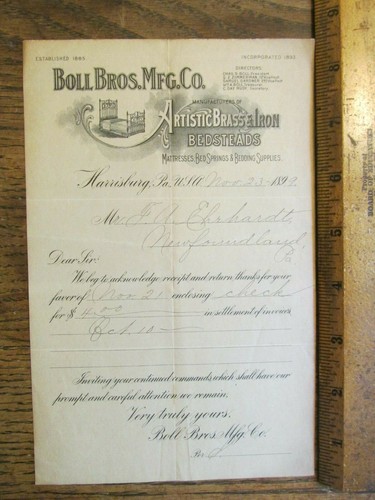 ESTABLISHED 1883.
INCORPORATED 1895.
BOLL BROS. MFG. CO.
DIRECTORS:
MANUFACTURERS OF
ARTISTIC BRASS & IRON
BEDSTEADS
MATTRESSES, BED SPRINGS & BEDDING SUPPLIES.
Harrisburg, Pa. U.S.A. Nov. 23 1899.
Mr. F. A. Ehrhardt,
Newfoundland,
Pa
Dear Sir:
We beg to acknowledge receipt and return thanks for your
favor of Nov 21 enclosing check
for $ 4.00 in settlement of invoices
Oct. 10
Inviting your continued commands, which shall have our
prompt and careful attention we remain.
Very truly yours.
Boll Bros. Mfg. Co.
Per